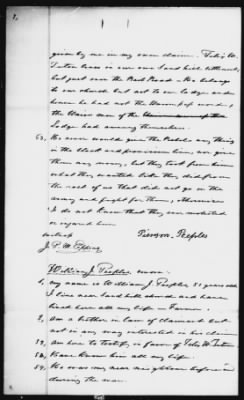 1.
given by me in my own claim. Felix W.
but just over the Rail Road – He belongs
to our church but not to our Lodge and
hence he had not the Union pass words,
the Union men of the
Lodge had among themselves.
53, He never would give the Rebels any thing
in the stock and provision line, nor give
them any money, but they took from him
what they wanted like they did from
the rest of us that did not go in the
army and fight for them, otherwise
I do not know that they ever molested
or injured him
Pierson Peeples
Attest
J. P. M. Epping
William J. Peeples, sworn.
1, my name is William J. Peeples, 31 years old
I live near Sand hill church and have
lived here all my life – Farmer.
2, Am a brother in law of claimant but
not in any way interested in his claim
13, Am here to testify in favor of Felix W.
14, Have known him all my life.
59, He was my near neighbor before and
during the war.